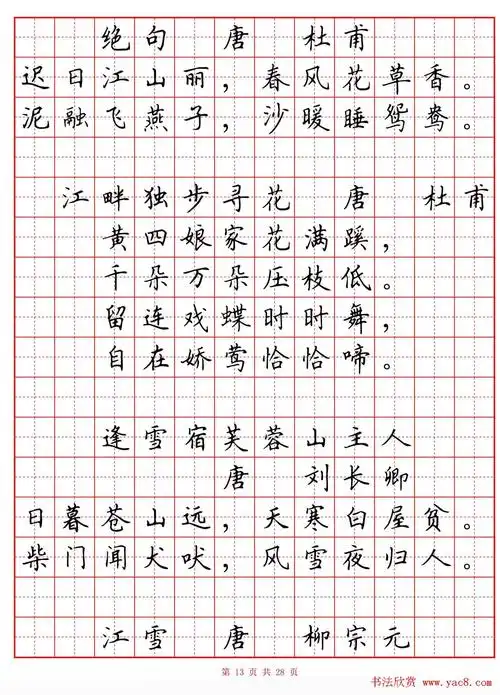 绝句 唐 杜甫
迟日江山丽，春风花草香。
泥融飞燕子，沙暖睡鸳鸯。
江畔独步寻花 唐 杜甫
黄四娘家花满蹊，
千朵万朵压枝低。
留连戏蝶时时舞，
自在娇莺恰恰啼。
逢雪宿芙蓉山主人
唐 刘长卿
日暮苍山远，天寒白屋贫。
柴门闻犬吠，风雪夜归人。
江雪 唐 柳宗元
第 13 页 共 28 页
书法欣赏
www.yac8.com